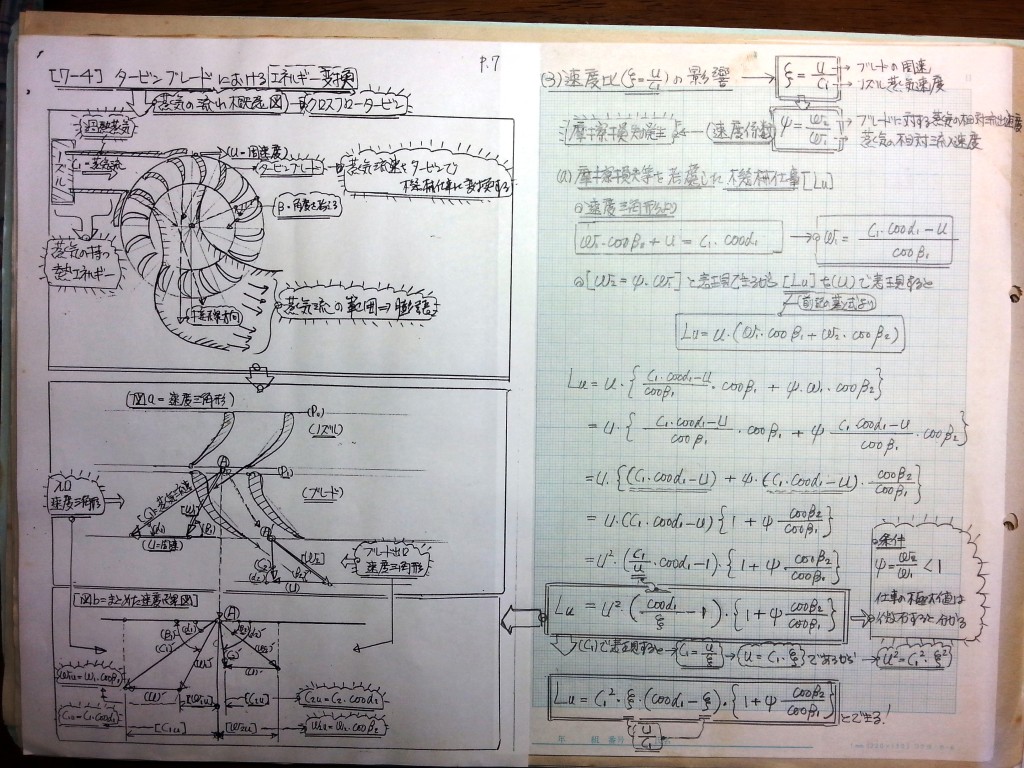 P.7
[7-4] タービンブレードにおけるエネルギー変換
蒸気の流れ概念図 クロスフロータービン
ノズル
C₁=蒸気流
U=周速度
タービンブレード
蒸気流速をタービンで
機械仕事に変換する
β=角度を与える
蒸気の持つ
熱エネルギー
蒸気流の範囲⇒膨張
(図a=速度三角形)
(P₀)
(ノズル)
(A)
(P₁)
(ブレード)
入口
速度三角形
(U=周速)
[W₂]
ブレード出口
速度三角形
(U)
[図b=まとめた速度線図]
(A)
W₁u=W₁·cosβ₁
[W₁u]
[C₂u]
C₂u=C₂·cosα₂
C₁u=C₁·cosα₁
[C₁u]
[W₂u]
W₂u=W₂·cosβ₂
(3)速度比(ξ=U/C₁)の影響
ξ=U/C₁
ブレードの周速
ノズル蒸気速度
摩擦損失の発生
(速度係数)
ψ=W₂/W₁
ブレードに対する蒸気の相対流出速度
蒸気の相対流入速度
(a) 摩擦損失を考慮した機械仕事[Lu]
◎速度三角形より
W₁·cosβ₁+U=C₁·cosα₁
W₁=(C₁·cosα₁-U)/cosβ₁
◎[W₂=ψ·W₁]と表現できるから[Lu]を(U)で表現すると
前記の基式より
Lu=U·(W₁·cosβ₁+W₂·cosβ₂)
Lu=U·{(C₁·cosα₁-U)/cosβ₁·cosβ₁+ψ·W₁·cosβ₂}
=U·{(C₁·cosα₁-U)/cosβ₁·cosβ₁+ψ(C₁·cosα₁-U)/cosβ₁·cosβ₂}
=U·{(C₁·cosα₁-U)+ψ·(C₁·cosα₁-U)·cosβ₂/cosβ₁}
=U·(C₁·cosα₁-U){1+ψcosβ₂/cosβ₁}
=U²·(C₁/U·cosα₁-1)·{1+ψcosβ₂/cosβ₁}
◎条件
ψ=W₂/W₁<1
仕事の極大値は
微分すると分かる
Lu=U²·(cosα₁/ξ-1)·{1+ψcosβ₂/cosβ₁}
(C₁)で表現すると→C₁=U/ξ→U=C₁·ξであるから→U²=C₁²·ξ²
Lu=C₁²·ξ·(cosα₁-ξ)·{1+ψcosβ₂/cosβ₁}とできる!
U/C₁
年 組 番号